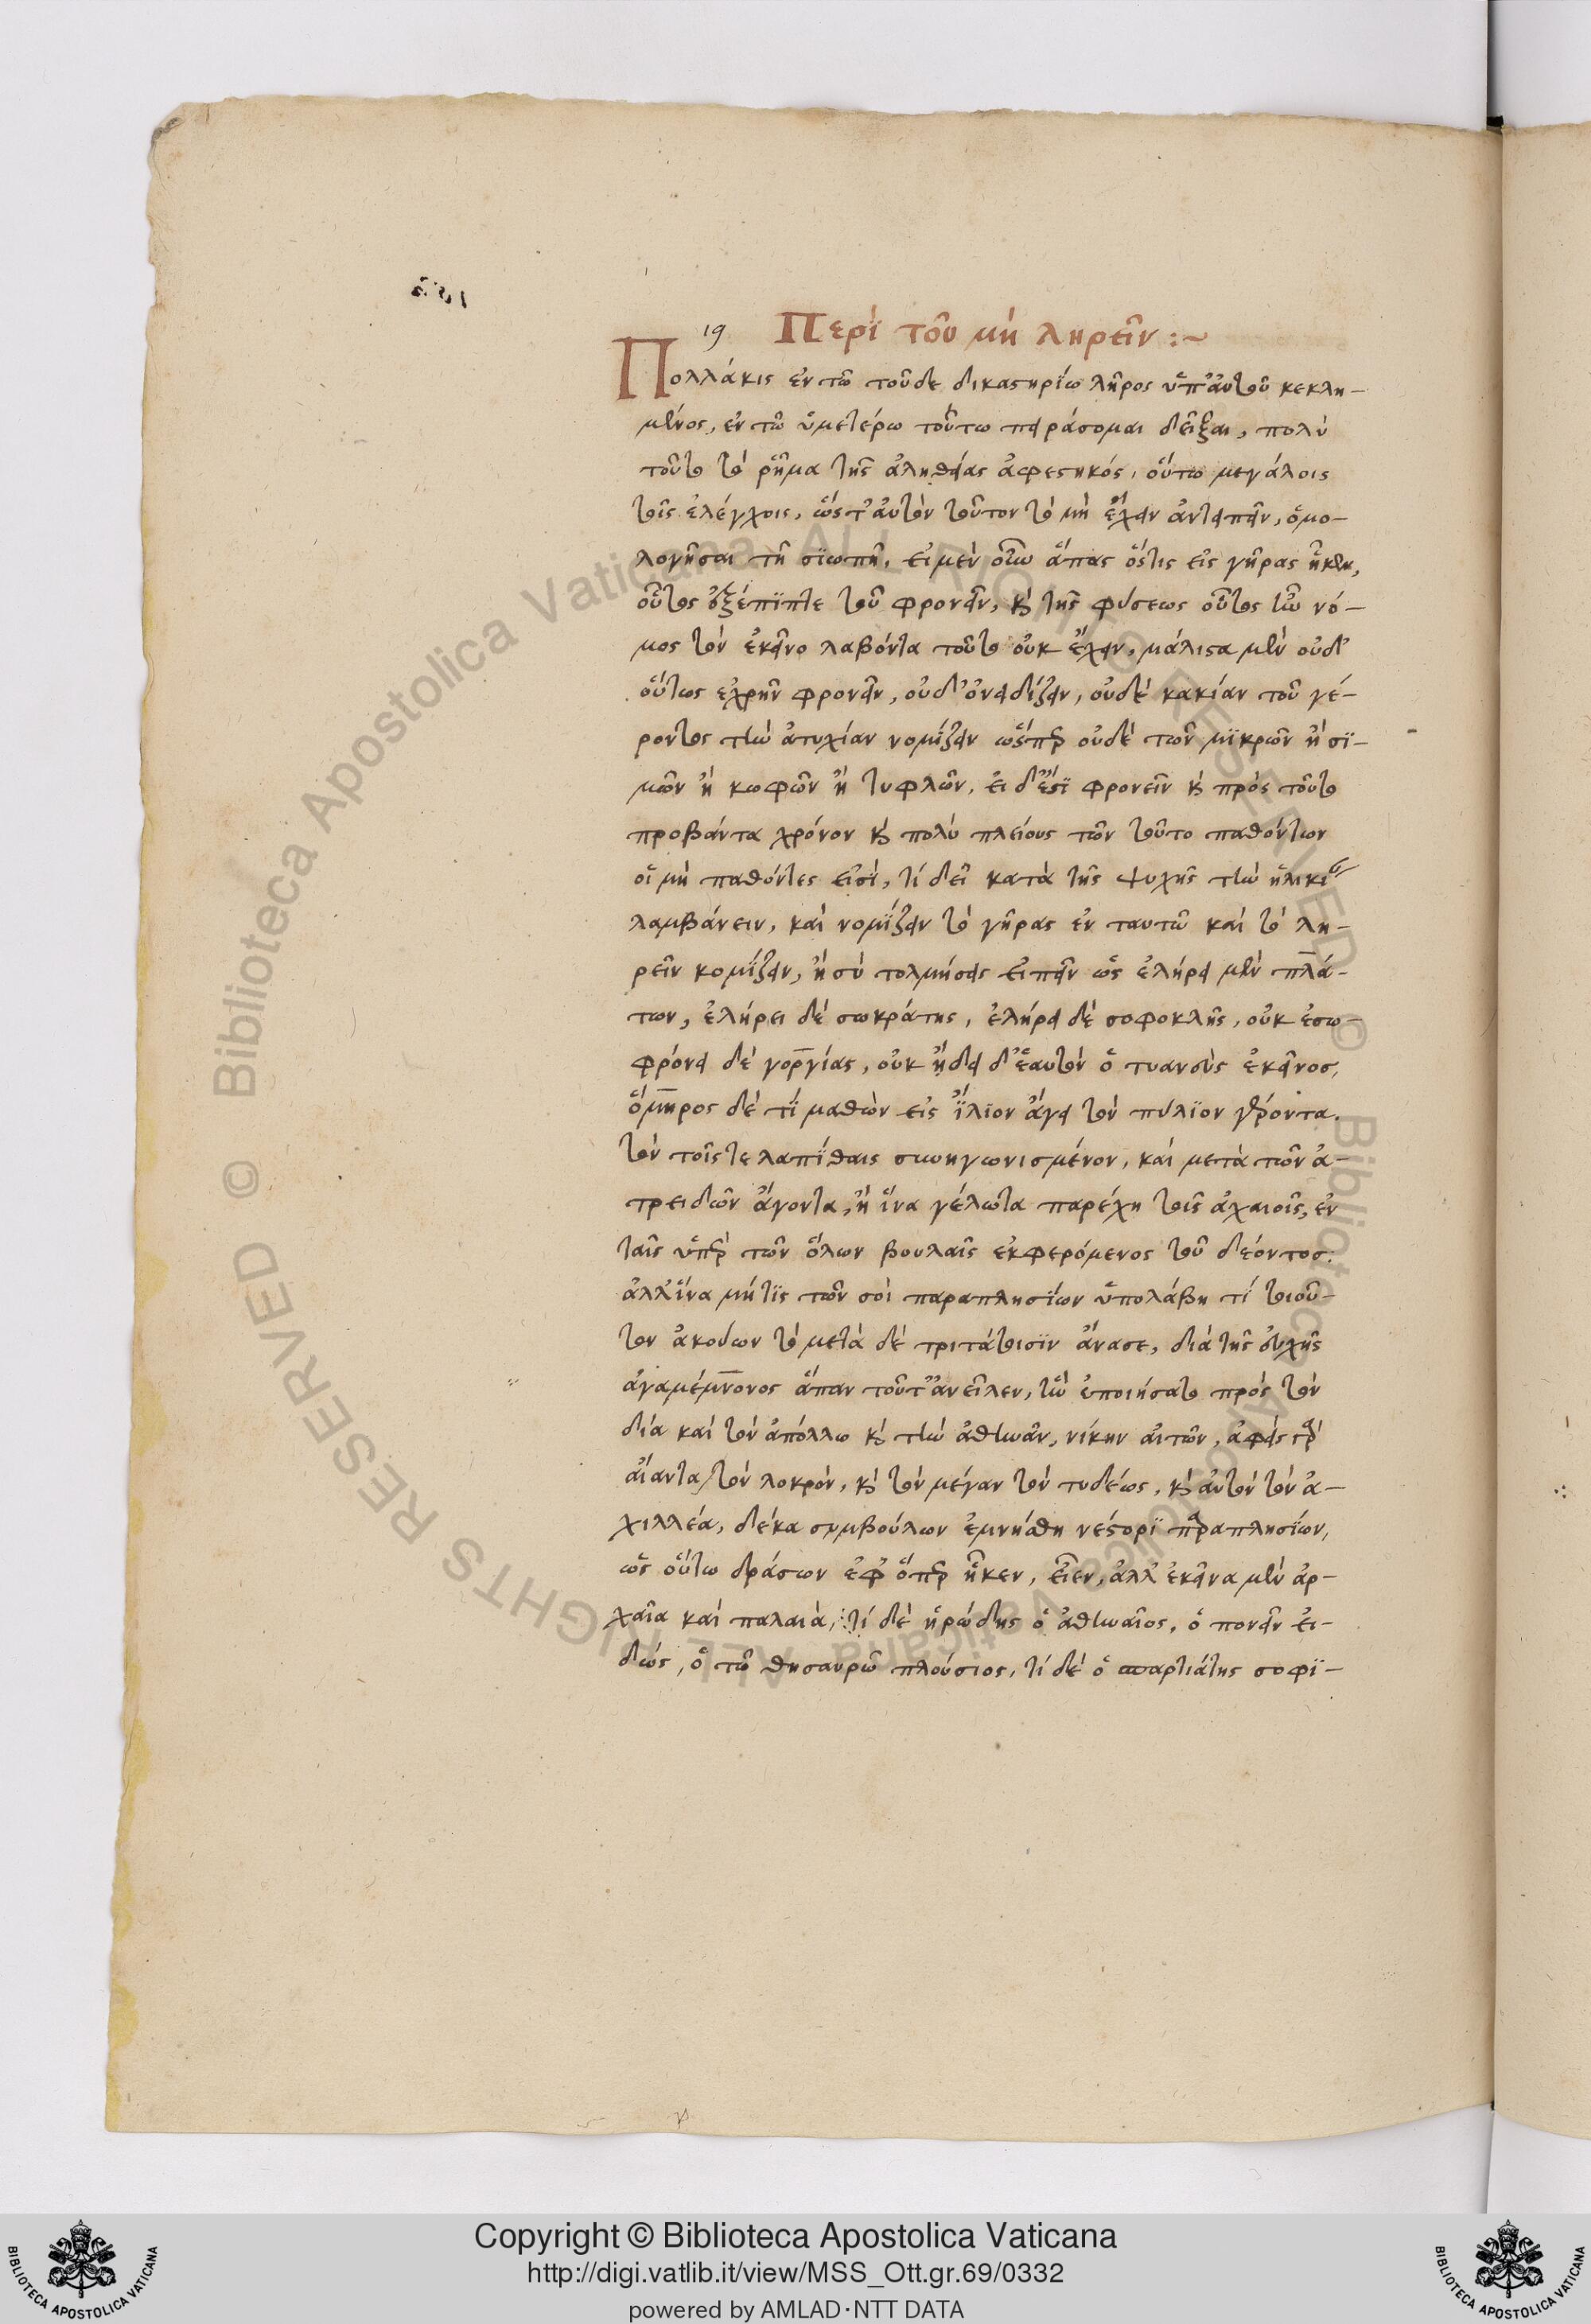 19 Περὶ τοῦ μὴ ληρεῖν :~
Πολλάκις ἐν τῶ τοῦδε δικαστηρίω λῆρος ὑπ' αὐτοῦ κεκλη-
μένος, ἐν τῶ ὑμετέρω τούτω πειράσομαι δεῖξαι, πολὺ
τοῦτο τὸ ῥῆμα τῆς ἀληθείας ἀφεστηκός, οὕτω μεγάλοις
τοῖς ἐλέγχοις, ὥστ' αὐτὸν τοῦτον τὸ μὴ ἔχειν ἀντειπεῖν, ὁμο-
λογῆσαι τῆ σϊωπῆ. εἰ μὲν οὖν ἅπας ὅστις εἰς γῆρας ἧκεν,
οὗτος ἐξέπϊπτε τοῦ φρονεῖν, καὶ τῆς φύσεως οὗτος ἦν νό-
μος τὸν ἐκεῖνο λαβόντα τοῦτο οὐκ ἔχειν, μάλιστα μὲν οὐδ'
οὕτως ἐχρῆν φρονεῖν, οὐδ' ὀνειδίζειν, οὐδὲ κακίαν τοῦ γέ-
ροντος τὴν ἀτυχίαν νομίζειν ὥσπερ οὐδὲ τῶν μϊκρῶν ἢ σϊ-
μῶν ἢ κωφῶν ἢ τυφλῶν. εἰ δ' ἔστϊ φρονεῖν καὶ πρὸς τοῦτο
προβάντα χρόνον καὶ πολὺ πλείους τῶν τοῦτο παθόντων
οἱ μὴ παθόντες εἰσὶ, τί δεῖ κατὰ τῆς ψυχῆς τὴν ἡλικίαν
λαμβάνειν, καὶ νομϊζειν τὸ γῆρας ἐν ταυτῶ καὶ τὸ λη-
ρεῖν κομϊζειν, ἢ σὺ τολμήσεις εἰπεῖν ὡς ἐλήρει μὲν πλά-
των, ἐλήρει δὲ σωκράτης, ἐλήρει δὲ σοφοκλῆς, οὐκ ἐσω-
φρόνει δὲ γοργίας, οὐκ ἤδει δ' ἑαυτὸν ὁ τυανεὺς ἐκεῖνος,
ὅμηρος δὲ τϊ μαθὼν εἰς ἴλϊον ἄγει τὸν πύλϊον γέροντα.
τὸν τοῖς τε λαπίθαις συνηγωνισμένον, καὶ μετὰ τῶν ἀ-
τρειδῶν ἄγοντα, ἢ ἵνα γέλωτα παρέχη τοῖς ἀχαιοῖς, ἐν
ταῖς ὑπὲρ τῶν ὅλων βουλαῖς ἐκφερόμενος τοῦ δέοντος.
ἀλλ' ἵνα μή τϊς τῶν σοὶ παραπλησϊων ὑπολάβη τί τοιοῦ-
τον ἀκούων τὸ μετὰ δὲ τριτάτοισϊν ἄνασε, διὰ τῆς εὐχῆς
ἀγαμέμνονος ἅπαν τοῦτ' ἀνεῖλεν, ἣν ἐποιήσατο πρὸς τὸν
δία καὶ τὸν ἀπόλλω καὶ τὴν ἀθηνᾶν, νίκην αἰτῶν, ἀφεὶς γὰρ
αἴαντα τὸν λοκρὸν, καὶ τὸν μέγαν τὸν τυδέως, καὶ αὐτὸν τὸν ἀ-
χιλλέα, δέκα συμβούλων ἐμνήσθη νέστορϊ παραπλησϊων,
ὡς οὕτω δράσων ἐφ' ὅπερ ἧκεν, εἶεν, ἀλλ' ἐκεῖνα μὲν ἀρ-
χαῖα καὶ παλαιὰ, τί δὲ ἡρώδης ὁ ἀθηναῖος, ὁ πονεῖν εἰ-
δώς, ὁ τῶ θησαυρῶ πλούσιος, τί δὲ ὁ σπαρτιάτης σοφϊ-
Copyright © Biblioteca Apostolica Vaticana
http://digi.vatlib.it/view/MSS_Ott.gr.69/0332
powered by AMLAD·NTT DATA
BIBLIOTECA APOSTOLICA VATICANA
BIBLIOTECA APOSTOLICA VATICANA
© Biblioteca Apostolica Vaticana ALL RIGHTS RESERVED © Biblioteca Apostolica Vaticana ALL RIGHTS RESERVED